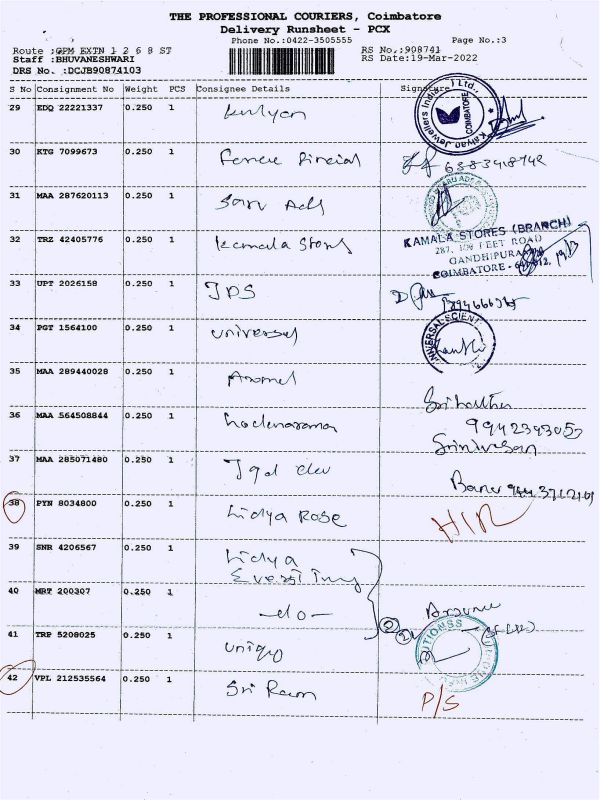 THE PROFESSIONAL COURIERS, Coimbatore
Delivery Runsheet - PCX
Phone No.:0422-3505555
Page No.:3
Route :GPM EXTN 1 2 6 8 ST
RS No.:908741
Staff :BHUVANESHWARI
RS Date:19-Mar-2022
DRS No. :DCJB90874103
S No Consignment No Weight PCS Consignee Details Signature
29 EDQ 22221337 0.250 1 Kalyan
Kalyan Jewellers India Ltd., COIMBATORE
30 KTG 7099673 0.250 1
31 MAA 287620113 0.250 1 Saru Ads
32 TRZ 42405776 0.250 1 Kamala Stores
KAMALA STORES (BRANCH)
287, 100 FEET ROAD
GANDHIPURAM
COIMBATORE - 641 012.
33 UPT 2026158 0.250 1
34 PGT 1564100 0.250 1 Universal
UNIVERSAL SCIENTI
35 MAA 289440028 0.250 1
36 MAA 564508844 0.250 1
Srinivasan
37 MAA 285071480 0.250 1
Banu
38 PYN 8034800 0.250 1 Lidya Rose
39 SNR 4206567 0.250 1 Lidya
40 MRT 200307 0.250 1 -do-
41 TRP 5208025 0.250 1
42 VPL 212535564 0.250 1 Sri Ram
P/S